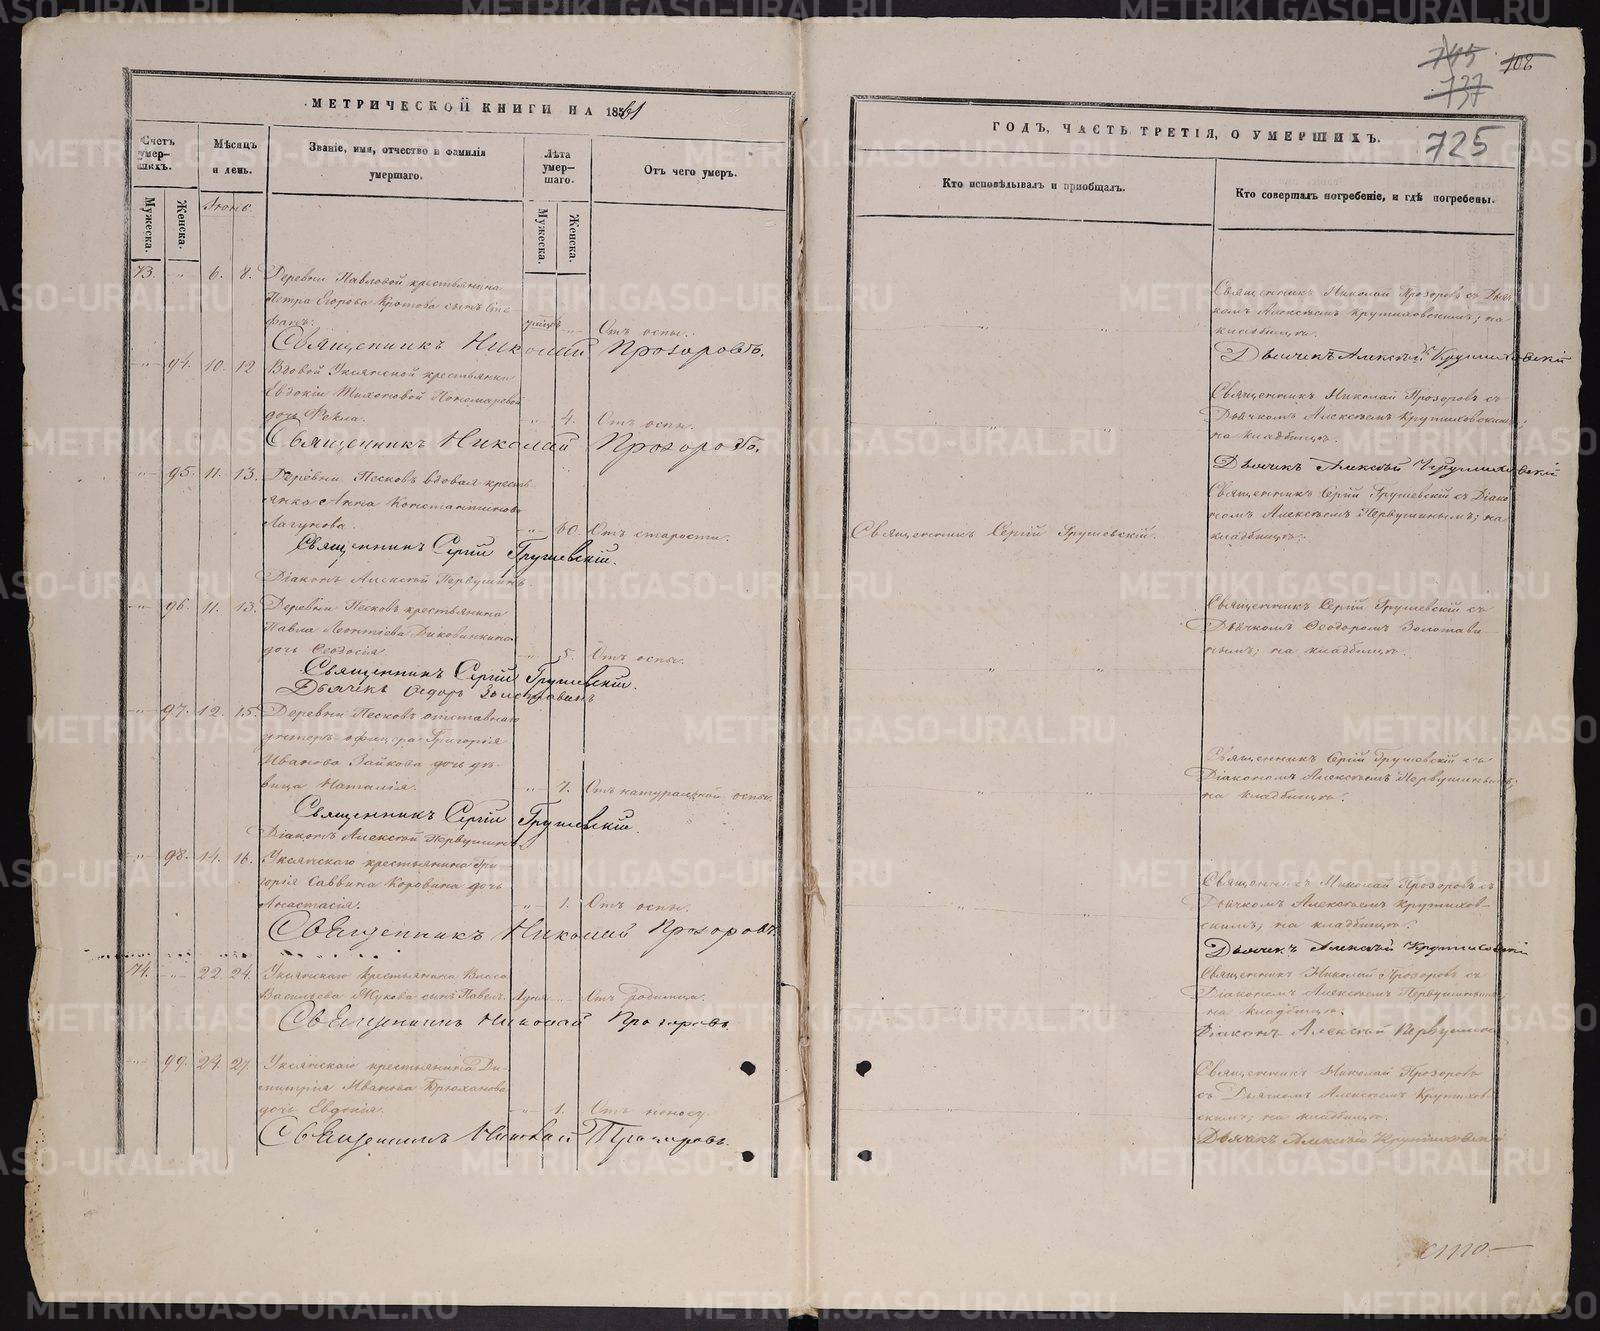 745 108
737
725
МЕТРИЧЕСКОЙ КНИГИ НА 1861
ГОДЪ, ЧАСТЬ ТРЕТІЯ, О УМЕРШИХЪ.
Счетъ умер-шихъ.
Мужеска.
Женска.
Мѣсяцъ и день.
Званіе, имя, отчество и фамилія умершаго.
Лѣта умер-шаго.
Мужеска.
Женска.
Отъ чего умеръ.
Кто исповѣдывалъ и пріобщалъ.
Кто совершалъ погребеніе, и гдѣ погребены.
73. 6. 8. Деревни Павловой крестьянина
Петра Егорова сынъ Сте-
фанъ. Отъ оспы.
Священникъ Николай Прозоровъ.
Священникъ Николай Прозоровъ съ Дьяч-
комъ Алексѣемъ Крутиховскимъ; на
кладбищѣ.
Дьячекъ Алексѣй Крутиховскій
94. 10. 12 Вдовой Уксянской крестьянки
Евдокіи Тихоновой Пономаревой
дочь Ѳекла. 4. Отъ оспы.
Священникъ Николай Прозоровъ.
Священникъ Николай Прозоровъ съ
Дьячкомъ Алексѣемъ Крутиховскимъ;
на кладбищѣ.
Дьячекъ Алексѣй Крутиховскій
95. 11. 13. Деревни Песковъ вдовая кресть-
янка Анна Константинова
Лагунова. 60. Отъ старости.
Священникъ Сергій Грушевскій.
Діаконъ Алексѣй Первушинъ
Священникъ Сергій Грушевскій.
Священникъ Сергій Грушевскій съ Діако-
номъ Алексѣемъ Первушинымъ; на
кладбищѣ.
96. 11. 13. Деревни Песковъ крестьянина
Павла Леонтіева
дочь Ѳеодосія. 5. Отъ оспы.
Священникъ Сергій Грушевскій.
Дьячекъ Ѳедоръ Золотавинъ
Священникъ Сергій Грушевскій съ
Дьячкомъ Ѳеодоромъ Золотави-
нымъ; на кладбищѣ.
97. 12. 15. Деревни Песковъ отставнаго
унтеръ-офицера Григорія
Иванова Зайкова дочь дѣ-
вица Наталія. 7. Отъ натуральной оспы.
Священникъ Сергій Грушевскій.
Діаконъ Алексѣй Первушинъ
Священникъ Сергій Грушевскій съ
Діакономъ Алексѣемъ Первушинымъ;
на кладбищѣ.
98. 14. 16. Уксянскаго крестьянина Гри-
горія Саввина Коровина дочь
Анастасія. 1. Отъ оспы.
Священникъ Николай Прозоровъ.
Священникъ Николай Прозоровъ съ
Дьячкомъ Алексѣемъ Крутихов-
скимъ; на кладбищѣ.
Дьячекъ Алексѣй Крутиховскій
74. 22. 24. Уксянскаго крестьянина Власа
Васильева Жукова сынъ Павелъ. Отъ родимца.
Священникъ Николай Прозоровъ.
Священникъ Николай Прозоровъ съ
Діакономъ Алексѣемъ Первушинымъ;
на кладбищѣ.
Діаконъ Алексѣй Первушинъ
99. 24. 27. Уксянскаго крестьянина Ди-
митрія Иванова Брюханова
дочь Евдокія. 1. Отъ поносу.
Священникъ Николай Прозоровъ.
Священникъ Николай Прозоровъ
съ Дьячкомъ Алексѣемъ Крутихов-
скимъ; на кладбищѣ.
Дьячекъ Алексѣй Крутиховскій
METRIKI.GASO-URAL.RU